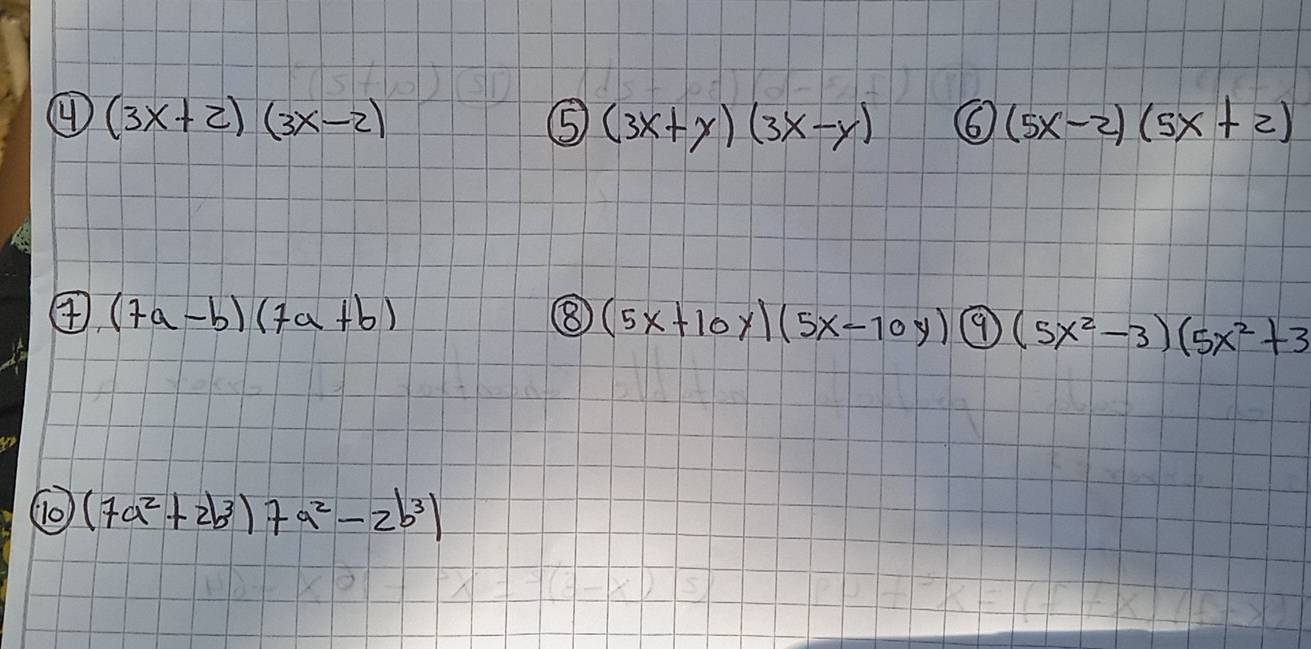 ④ (3x+2) (3x-2) ⑤ (3x+y) (3x-y) ⑥ (5x-2) (5x+2)
⑦. (7a-b) (7a+b) ⑧ (5x+10y) (5x-10y) ⑨ (5x²-3) (5x²+3
⑩ (7a²+2b³) 7a²-2b³)